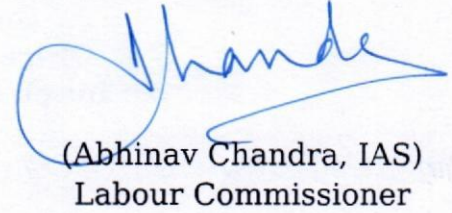 (Abhinav Chandra, IAS)
Labour Commissioner